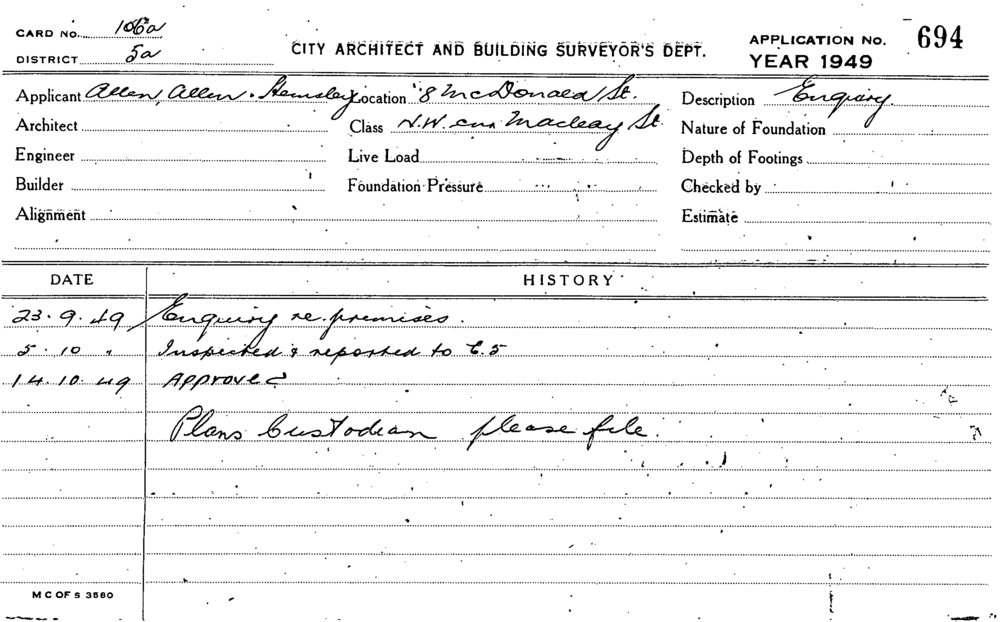 CARD No. 106a
DISTRICT 5a
CITY ARCHITECT AND BUILDING SURVEYOR'S DEPT.
APPLICATION No. 694
YEAR 1949
Applicant Allen, Allen & Hemsley Location 8 McDonald St. Description Enquiry
Architect Class N.W. cnr Macleay St. Nature of Foundation
Engineer Live Load Depth of Footings
Builder Foundation Pressure Checked by
Alignment Estimate
DATE HISTORY
23.9.49 Enquiry re. premises.
5.10 " Inspected & reported to C.S
14.10.49 Approved
Plans Custodian please file.
M C OF S 3560